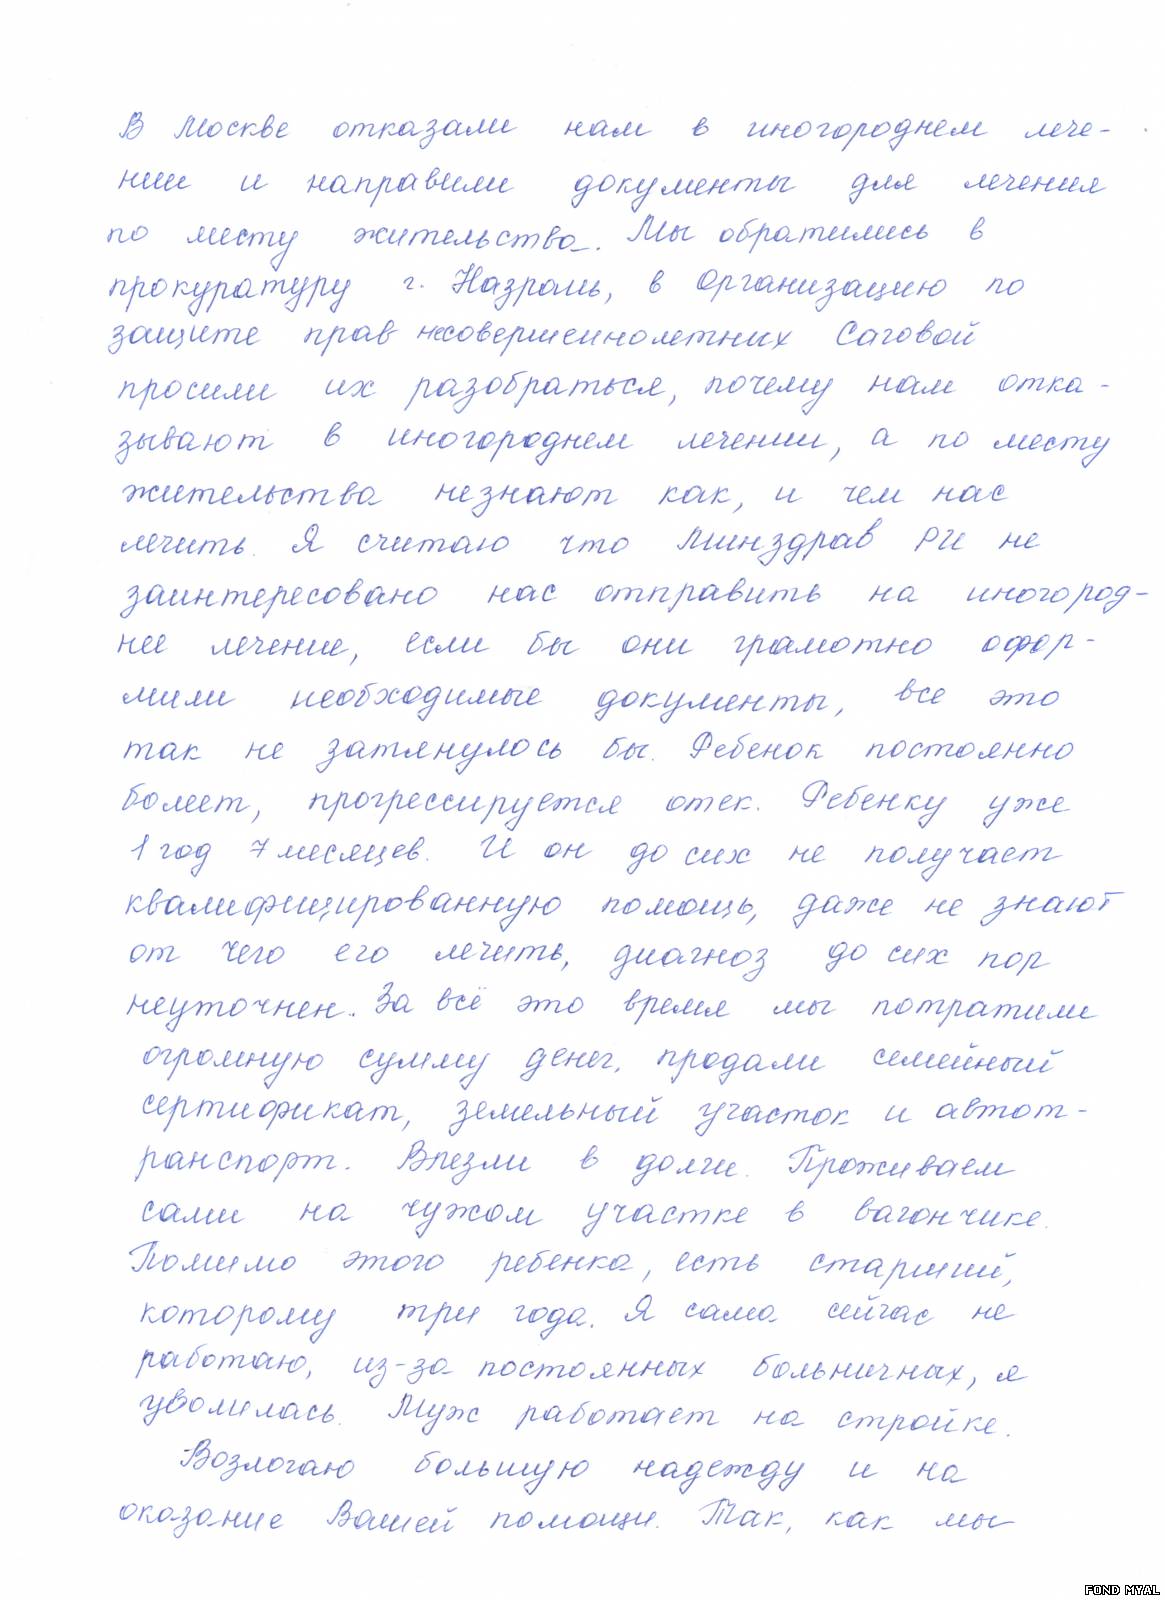 В Москве отказали нам в иногороднем лече-
нии и направили документы для лечения
по месту жительства. Мы обратились в
прокуратуру г. Назрань, в Организацию по
защите прав несовершеннолетних Саговой
просили их разобраться, почему нам отка-
зывают в иногороднем лечении, а по месту
жительства незнают как, и чем нас
лечить. Я считаю что Минздрав РИ не
заинтересовано нас отправить на иногород-
нее лечение, если бы они грамотно офор-
мили необходимые документы, все это
так не затянулось бы. Ребенок постоянно
болеет, прогрессируется отек. Ребенку уже
1 год 7 месяцев. И он до сих не получает
квалифицированную помощь, даже не знают
от чего его лечить, диагноз до сих пор
неуточнен. За всё это время мы потратили
огромную сумму денег, продали семейный
сертификат, земельный участок и автот-
ранспорт. Влезли в долги. Проживаем
сами на чужом участке в вагончике.
Помимо этого ребенка, есть старший,
которому три года. Я сама сейчас не
работаю, из-за постоянных больничных, я
уволилась. Муж работает на стройке.
Возлогаю большую надежду и на
оказание Вашей помощи. Так, как мы
FOND MYAL